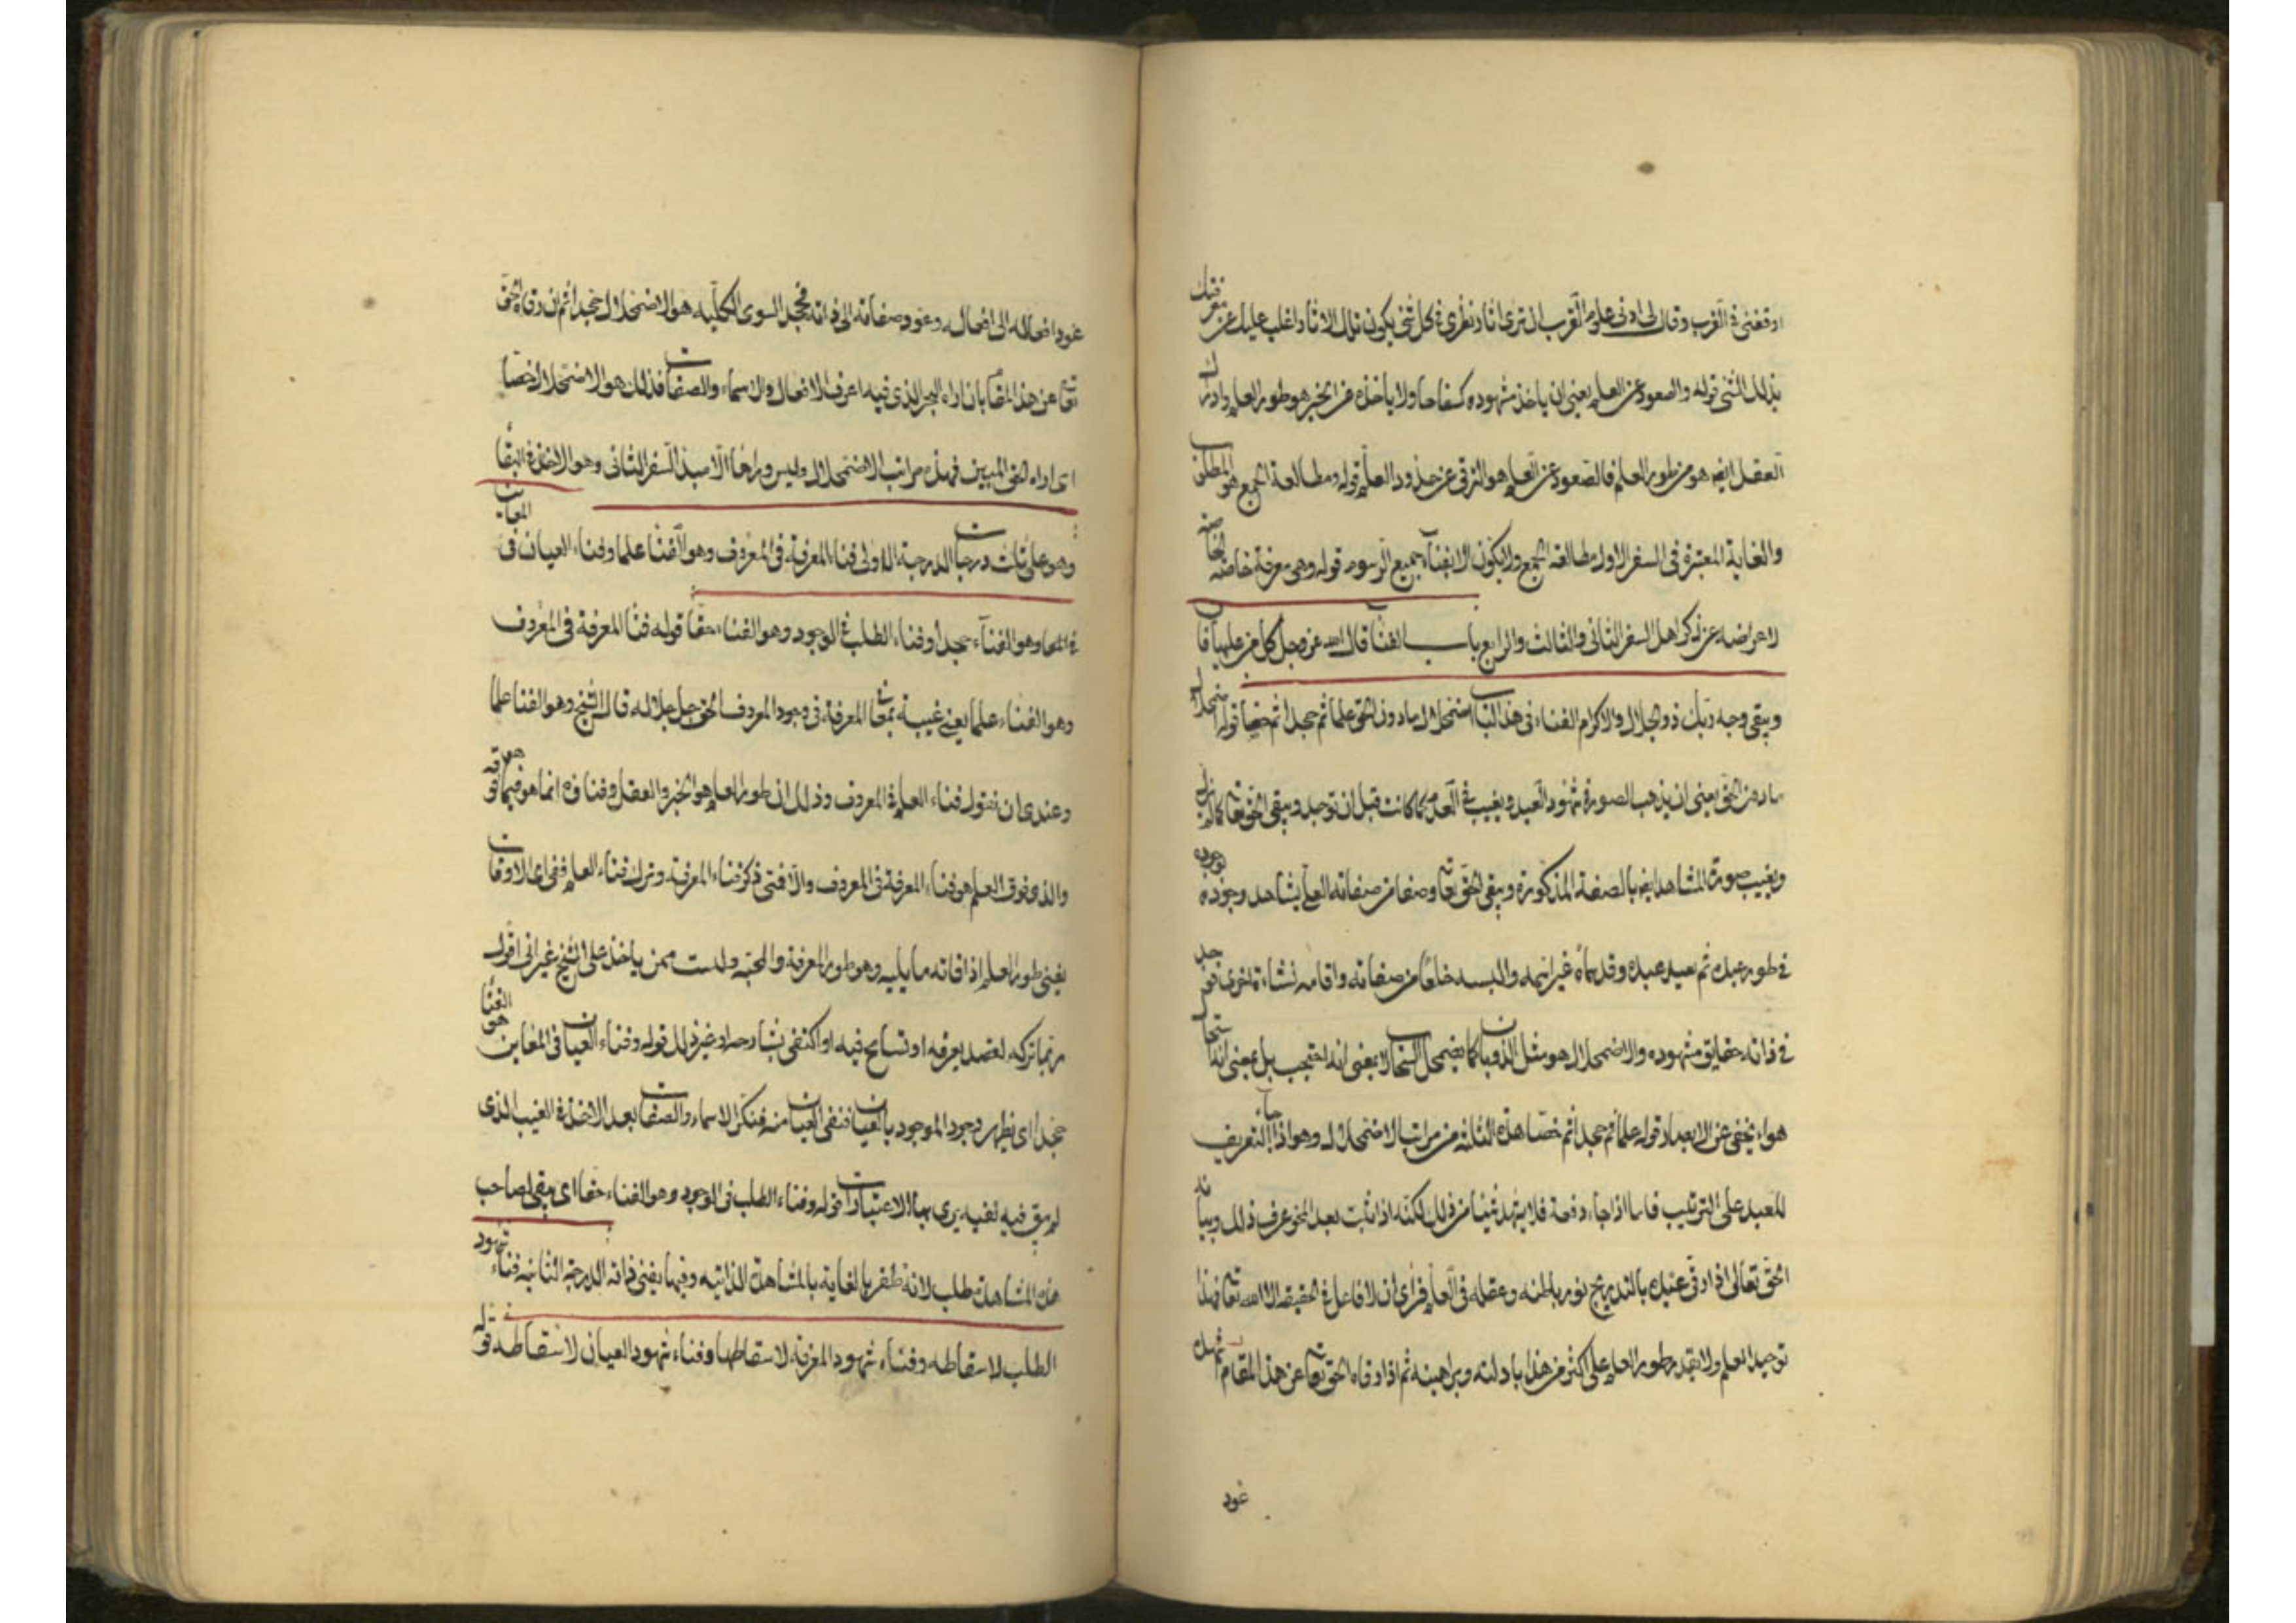 اوقفنى فى القرب وقال لى ادنى علوم القرب ان ترى اثار نظرى فى كل شئ يكون تلك الاثار اغلب عليك من معرفتك
بذلك الشئ قوله والصعود عن العلم يعنى ان ياخذ شهوده كفاحا ولا ياخذه من الخبر هو طور العلم وادراك
العقل ايضا هو من طور العلم فالصعود عن العلم هو الترقى عن حدود العلم قوله ومطالعة الجمع هو المطلوب
والغاية المعتبرة فى السفر الاول مطالعة الجمع ولا يكون الا بفناء جميع الرسوم قوله وهى معرفة خاصة الخاصة
لاعراضه عن ذكر اهل السفر الثانى والثالث والرابع باب الفناء قال الله عز وجل كل من عليها فان
ويبقى وجه ربك ذو الجلال والاكرام الفناء فى هذا الباب اضمحلال ما دون الحق علما ثم جحدا ثم حقا قوله اضمحلال
ما دون الحق يعنى ان يذهب الصورة فى شهود العبد ويغيب فى العدم كما كانت قبل ان توجد ويبقى الحق تعا كما لم يزل
ويغيب صورة المشاهد ايضا بالصفة المذكورة ويبقى الحق تعا وصفا من صفاته العلى يشاهد وجوده بوجوده
فى طور عبده ثم يعيد عبده وقد سماه غير اسمه والبسه خلعا من صفاته واقامه نشاءة اخرى فوجد
فى ذاته حقايق شهوده والاضمحلال هو مثل الذوبان كما يضمحل السحاب لا بمعنى انه احتجب بل بمعنى انه استحال
هواء يخفى عن الابصار قوله علما ثم جحدا ثم حقا هذه الثلثة من مراتب الاضمحلال وهو اذا جاء التعريف
للعبد على الترتيب فاما اذا جاء دفعة فلا يشهد شيئا من ذلك لكنه اذا ثبت بعد المحو عرف ذلك وبيانه
الحق تعالى اذا رقى عبده بالتدريج نور باطنه وعقله فى العلم فراى ان لا فاعل فى الحقيقة الا الله تعا فهذا
توحيد العلم ولا يقدر طور العلم على اكثر من هذا بادلته وبراهينه ثم اذا رقاه الحق تعا عن هذا المقام اشهده
عود
عود افعاله الى افعاله وعود صفاته الى ذاته فجحد السوى بالكلية هو الاضمحلال جحدا ثم ان رقاه الحق
تعا عن هذا المقام بان اراه البحر الذى فيه اغرق الافعال والاسماء والصفات فذلك هو الاضمحلال حقا
اى اراه الحق المبين فهذه مراتب الاضمحلال وليس وراها الا مبدا السفر الثانى وهو الاخذ فى البقاء
وهو على ثلث درجات الدرجة الاولى فناء المعرفة فى المعروف وهو الفناء علما وفناء العيان فى
فى المعاين وهو الفناء جحدا وفناء الطلب فى الوجود وهو الفناء حقا قوله فناء المعرفة فى المعروف
وهو الفناء علما يعنى غيبة المعرفة فى وجود المعروف الحق جل جلاله قال الشيخ وهو الفنا علما
وعندى ان نقول فناء العلم فى المعروف وذلك ان طور العلم هو الخبر والعقل وفناؤه انما هو فيما هو فوقه
والذى فوق العلم هو فناء المعرفة فى المعروف والا فمتى ذكر فناء المعرفة وترك فناء العلم ففى اى الاوقات
يفنى طور العلم اذا فاته ما يليه وهو طور المعرفة والمحبة ولست ممن ياخذ على الشيخ غير انى اقول
ربما تركه لقصد يعرفه او تسامح فيه او اكتفى بشارحه او غير ذلك قوله وفناء العيان فى المعاين هو الفناء
جحدا اى يظهر وجود الموجود بالعيان فنفى العيان منه فتنكر الاسماء والصفات بعد الاخذ فى الغيب الذى
لم يبق فيه لغيبه يرى بها الاعتبارات قوله وفناء الطلب فى الوجود وهو الفناء حقا اى يبقى لصاحب
هذه المشاهدة طلب لانه ظفر بالغاية بالمشاهدة الذاتيه وفيها يفنى ذاته الدرجة الثانية فناء شهود
الطلب لاسقاطه وفناء شهود المعرفة لاسقاطها وفناء شهود العيان لاسقاطه قوله